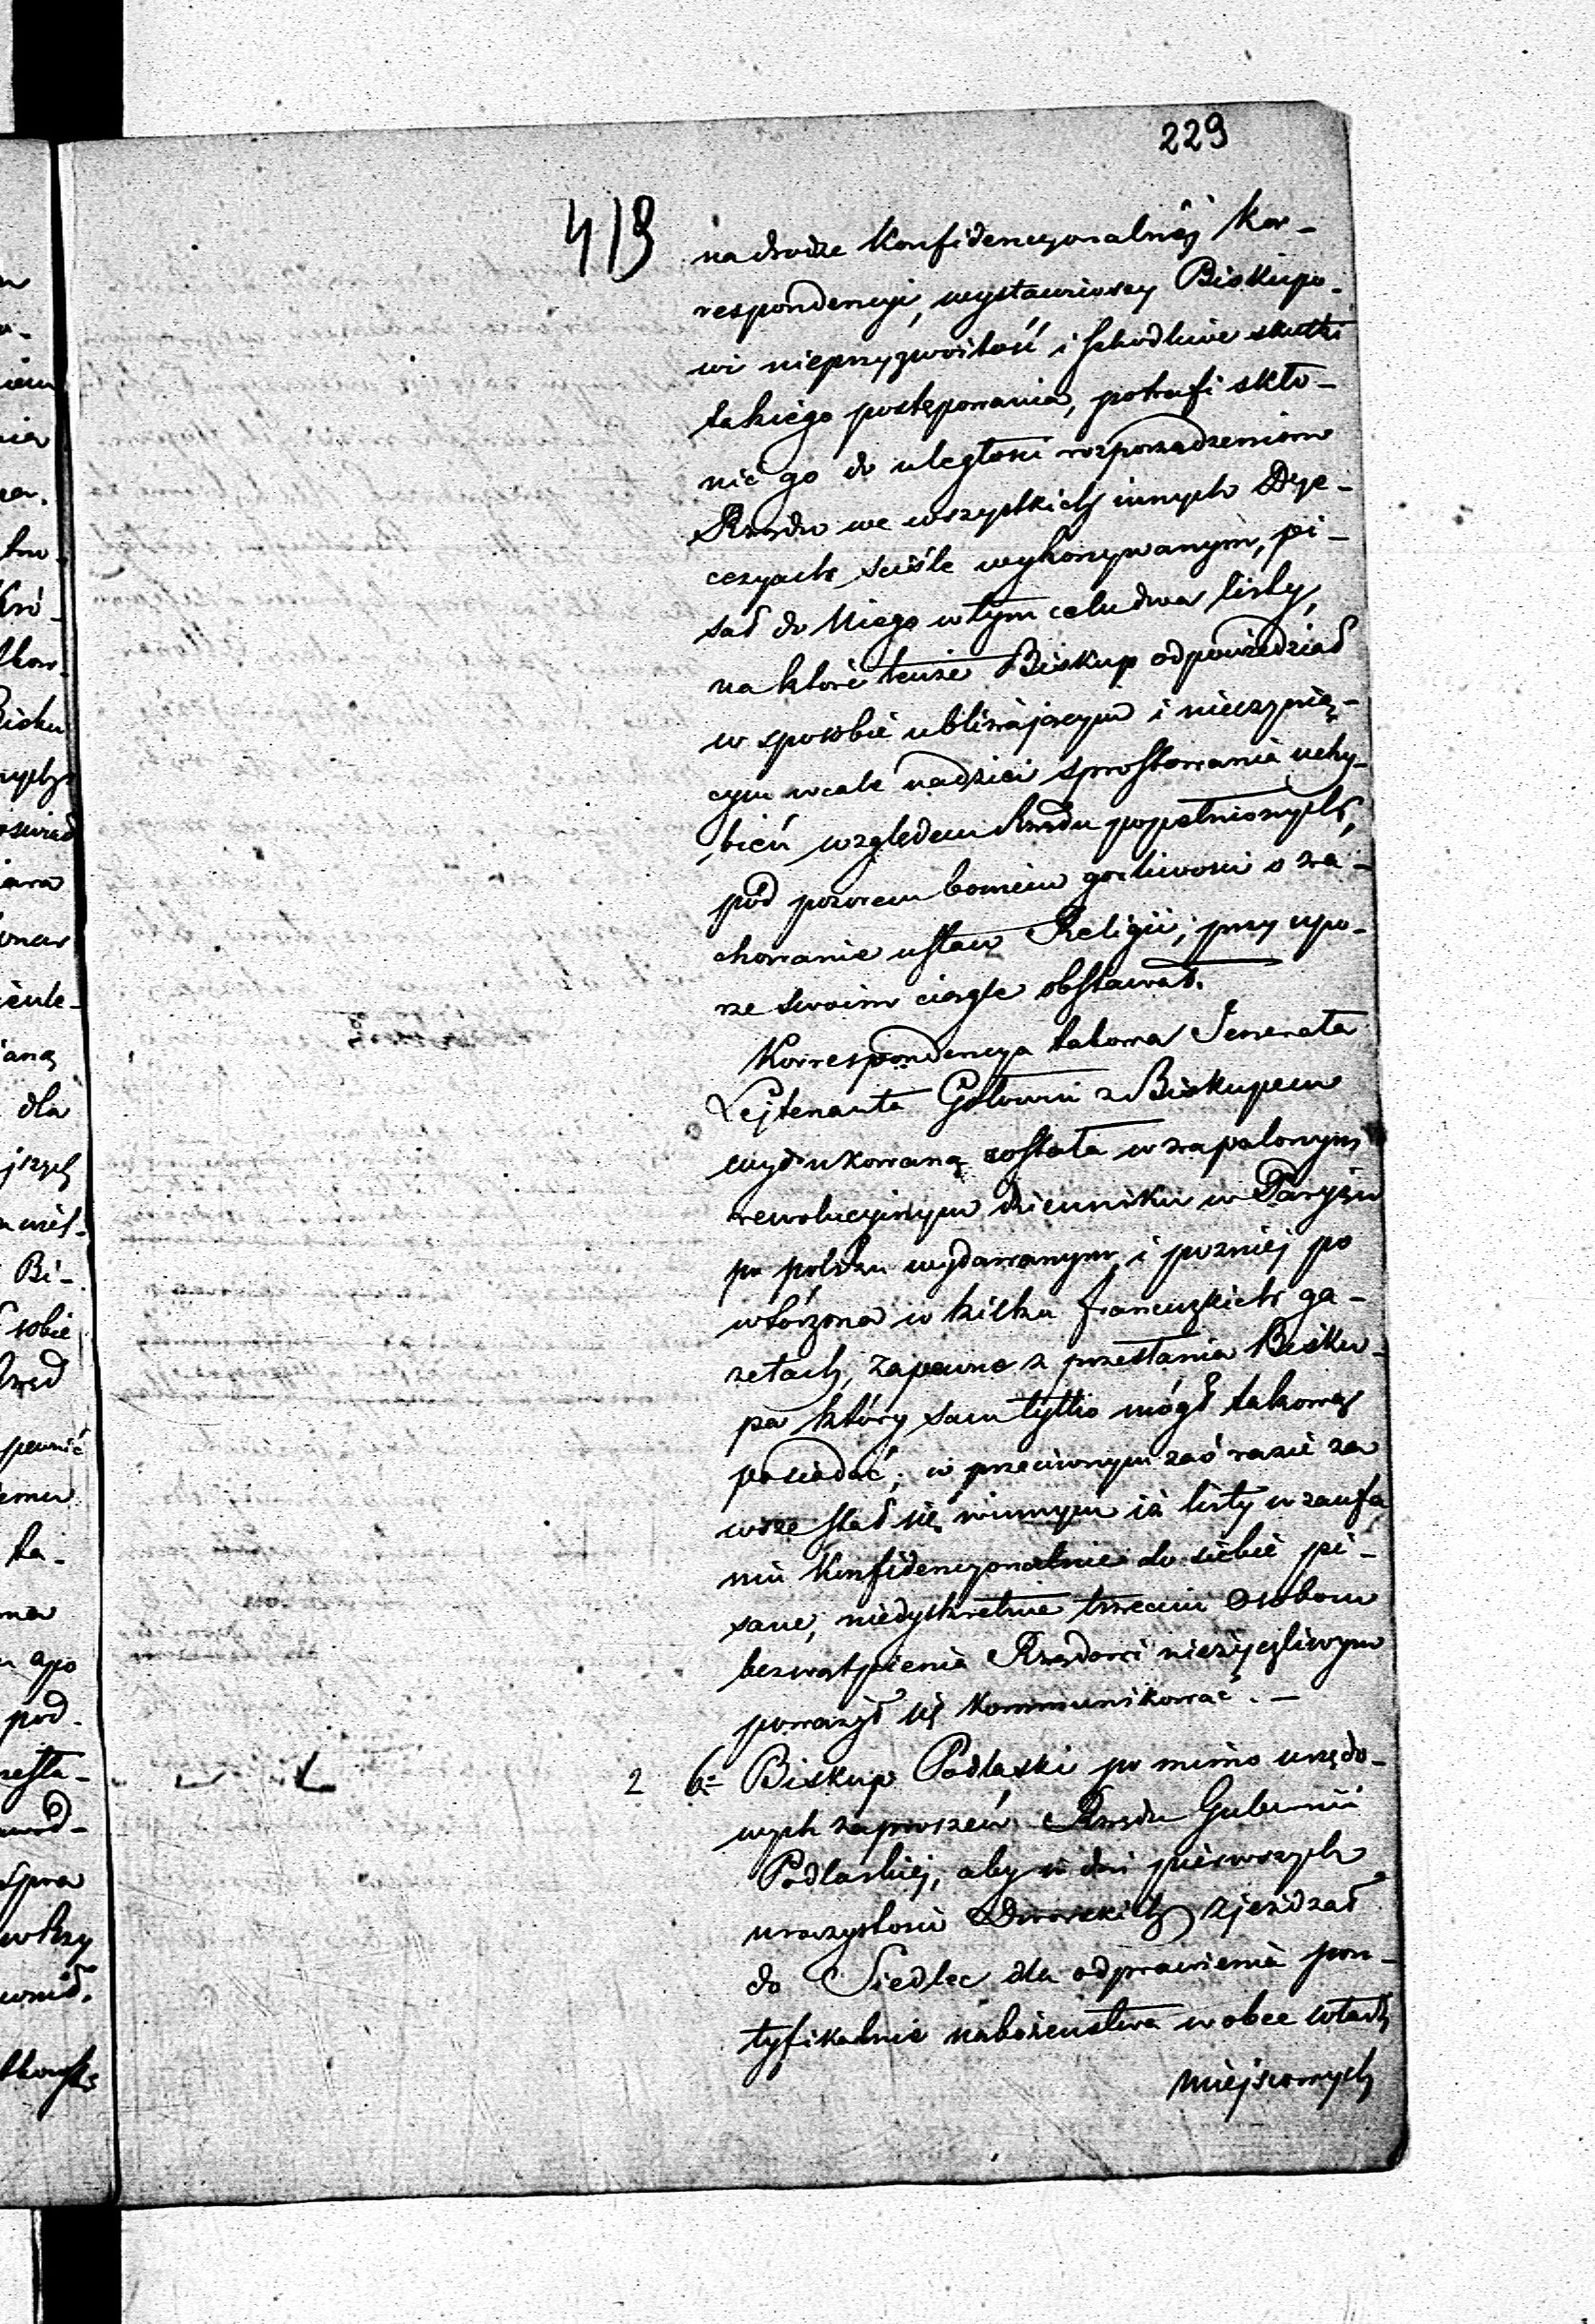 229
419
na drodze Konfidencyonalnéj Kor-
respondencyi, wystawiwszy Biskupo-
wi nieprzyzwoitość i szkodliwe skutki
takiego postępowania, potrafi skło-
nić go do uległości rozporządzeniom
Rządu we wszystkich innych Dye-
cezyach ściśle wykonywanym, pi-
sał do Niego w tym celu dwa listy,
na które tenże Biskup odpowiedział
w sposobie ubliżającym i nieczynią-
cym wcale nadziei sprostowania uchy-
bień względem Rządu popełnionych,
pod pozorem bowiem gorliwości o za-
chowanie ustaw Religii, przy upo-
rze swoim ciągle obstawał.
Korrespondencya takowa Jenerała
Lejtenanta Gołowin z Biskupem
wydrukowaną została w zapalonym
rewolucyjnym dzienniku w Paryżu
po polsku wydawanym i pozniej po
wtórzona w kilku francuzkich ga-
zetach, zapewne z przesłania Bisku-
pa który sam tylko mógł takową
posiadać; w przeciwnym zaś razie za
wsze stał się winnym iż listy w zaufa
niu Konfidencyonalnie do siebie pi-
sane, niedyskretnie trzecim Osobom
bezwątpienia Rządowi nieżyczliwym
poważył się kommunikować. —
2 6= Biskup Podlaski po mimo urzędo-
wych zaproszeń Rządu Gubernii
Podlaskiej, aby w dni pierwszych
uroczystości Dworskich zjeżdżał
do Siedlec dla odprawienia pon-
tyfikalnie nabożeństwa w obec władz
miejscowych